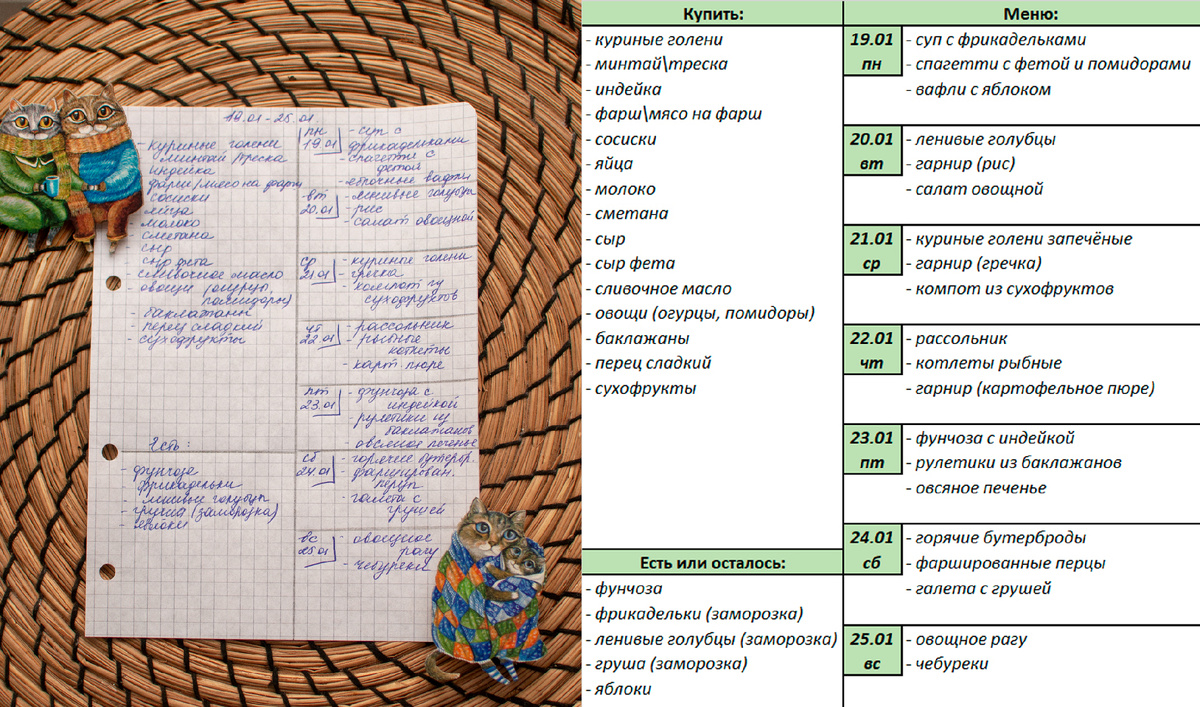 19.01 - 25.01
- куриные голени
- минтай/треска
- индейка
- фарш/мясо на фарш
- сосиски
- яйца
- молоко
- сметана
- сыр
- сыр фета
- сливочное масло
- овощи (огурцы,
помидоры)
- баклажаны
- перец сладкий
- сухофрукты
Есть:
- фунчоза
- фрикадельки
- ленивые голубцы
- груша (заморозка)
- яблоки
пн
19.01
- суп с
фрикадельками
- спагетти с
фетой
- яблочные вафли
вт
20.01
- ленивые голубцы
- рис
- салат овощной
ср
21.01
- куриные голени
- гречка
- компот из
сухофруктов
чт
22.01
- рассольник
- рыбные
котлеты
- карт. пюре
пт
23.01
- фунчоза с
индейкой
- рулетики из
баклажанов
- овсяное печенье
сб
24.01
- горячие бутерб.
- фарширован.
перцы
- галета с
грушей
вс
25.01
- овощное
рагу
- чебуреки
Купить:
- куриные голени
- минтай\треска
- индейка
- фарш\мясо на фарш
- сосиски
- яйца
- молоко
- сметана
- сыр
- сыр фета
- сливочное масло
- овощи (огурцы, помидоры)
- баклажаны
- перец сладкий
- сухофрукты
Есть или осталось:
- фунчоза
- фрикадельки (заморозка)
- ленивые голубцы (заморозка)
- груша (заморозка)
- яблоки
Меню:
19.01
пн
- суп с фрикадельками
- спагетти с фетой и помидорами
- вафли с яблоком
20.01
вт
- ленивые голубцы
- гарнир (рис)
- салат овощной
21.01
ср
- куриные голени запечёные
- гарнир (гречка)
- компот из сухофруктов
22.01
чт
- рассольник
- котлеты рыбные
- гарнир (картофельное пюре)
23.01
пт
- фунчоза с индейкой
- рулетики из баклажанов
- овсяное печенье
24.01
сб
- горячие бутерброды
- фаршированные перцы
- галета с грушей
25.01
вс
- овощное рагу
- чебуреки